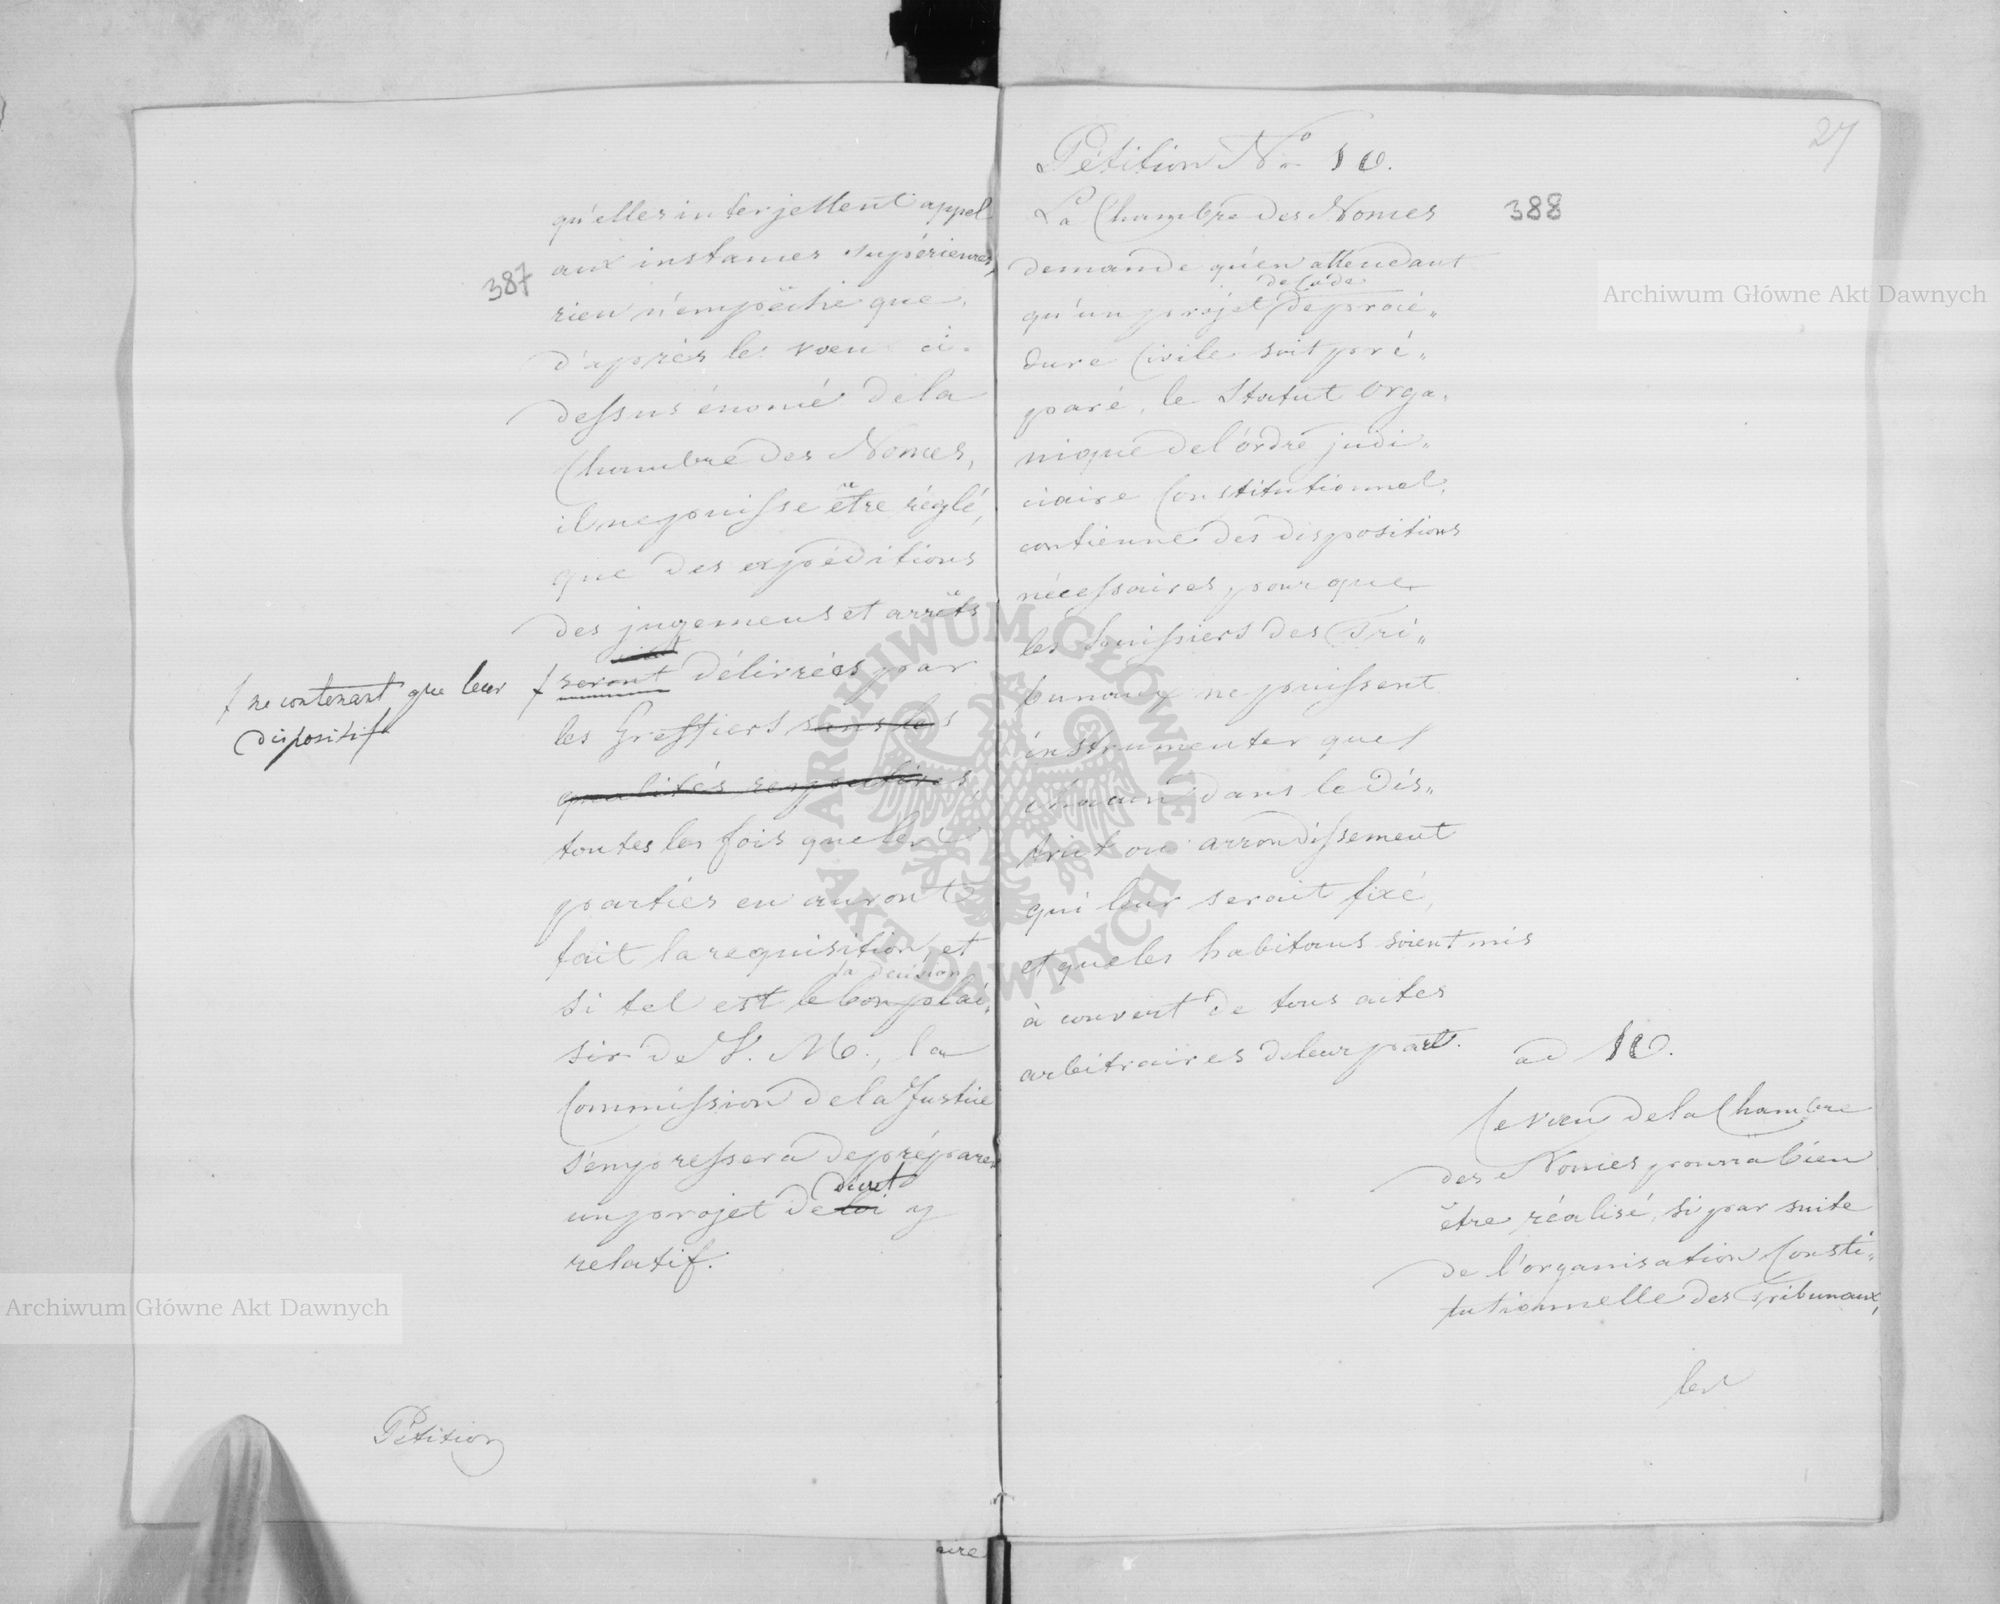 387
qu'elles interjettent appel
aux instances supérieures,
rien n'empêche que
d'après le vœu ci-
dessus énoncé de la
Chambre des Nonces,
il ne puisse être réglé,
que des expéditions
des jugemens et arrêts
ne contenant que leur
dispositif
seront délivrées par
les Greffiers sans les
qualités respectives,
toutes les fois que les
parties en auront
fait la requisition, et
la décision
si tel est le bon plai„
sir de S. M., la
Commission de la Justice
s'empressera de préparer
décret
un projet de loi y
relatif.
Pétition
27
Pétition No 10.
388
La Chambre des Nonces
demande qu'en attendant
de Code
qu'un projet de procé„
dure Civile soit pré„
paré, le Statut Orga„
nique de l'ordre judi„
ciaire Constitutionnel,
contienne des dispositions
nécessaires, pour que
les huissiers des Tri„
bunaux ne puissent
instrumenter que
chacun dans le Dis„
trict ou arrondissement
qui leur serait fixé,
et que les habitans soient mis
à couvert de tous actes
arbitraires de leur part.
ad 10.
Ce vœu de la Chambre
des Nonces pourra bien
être réalisé, si par suite
de l'organisation Consti„
tutionnelle des Tribunaux,
les
Archiwum Główne Akt Dawnych
Archiwum Główne Akt Dawnych
ARCHIWUM GŁÓWNE AKT DAWNYCH